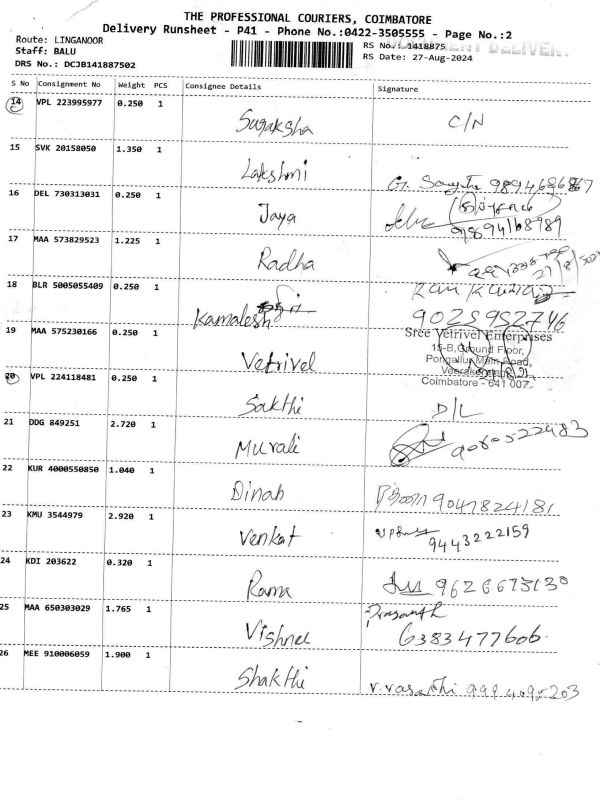 THE PROFESSIONAL COURIERS, COIMBATORE
Delivery Runsheet - P41 - Phone No.:0422-3505555 - Page No.:2
Route: LINGANOOR
Staff: BALU
DRS No.: DCJB141887502
RS No.: 1418875
RS Date: 27-Aug-2024
S No Consignment No Weight PCS Consignee Details Signature
14 VPL 223995977 0.250 1 Sugaksha C/N
15 SVK 20158050 1.350 1 Lakshmi
16 DEL 730313031 0.250 1 Jaya 9894168989
17 MAA 573829523 1.225 1 Radha
18 BLR 5005055409 0.250 1 Kamalesh Ram Kumar
9025952746
19 MAA 575230166 0.250 1 Vetrivel Sree Vetrivel Enterprises
15-B,Ground Floor,
Pongaliur Main Road,
Coimbatore - 641 007.
20 VPL 224118481 0.250 1 Sakthi D/L
21 DDG 849251 2.720 1 Murali 9080522483
22 KUR 4000550850 1.040 1 Dinah 9047824181
23 KMU 3544979 2.920 1 Venkat 9443222159
24 KDI 203622 0.320 1 Rama
25 MAA 650303029 1.765 1 Prasanth
6383477606
26 MEE 910006059 1.900 1 Shakthi V. Vasanthi